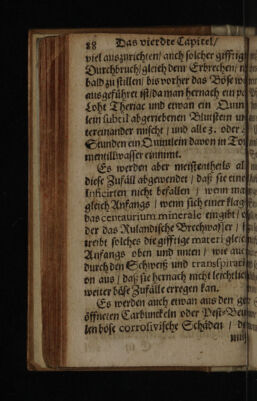 88 Das vierdte Capitel/
viel auszurichten/ auch solcher gifftige
Durchbruch/ gleich dem Erbrechen/
bald zu stillen/ bis vorher das Böse
ausgeführet ist/ da man hernach ein
Loht Theriac und etwan ein Quin
lein subtil abgeriebenen Blutstein un
tereinander mischt/ und alle 3. oder
Stunden ein Quintlein davon in Tor
mentillwasser einnimt.
Es werden aber meistentheils al
diese Zufäll abgewendet/ daß sie
Inficirten nicht befallen/ wenn ma
gleich Anfangs/ wenn sich einer klag
das centaurium minerale eingibt/ o
der das Rulandische Brechwasser/
treibt solches die gifftige materi gleic
Anfangs oben und unten/ wie auc
durch den Schweiß und transpirati
on aus/ daß sie hernach nicht leichtlich
weiter böse Zufälle erregen kan.
Es werden auch etwan aus den ge
öffneten Carbunckeln oder Pest-Beu
len böse corrosivische Schäden/